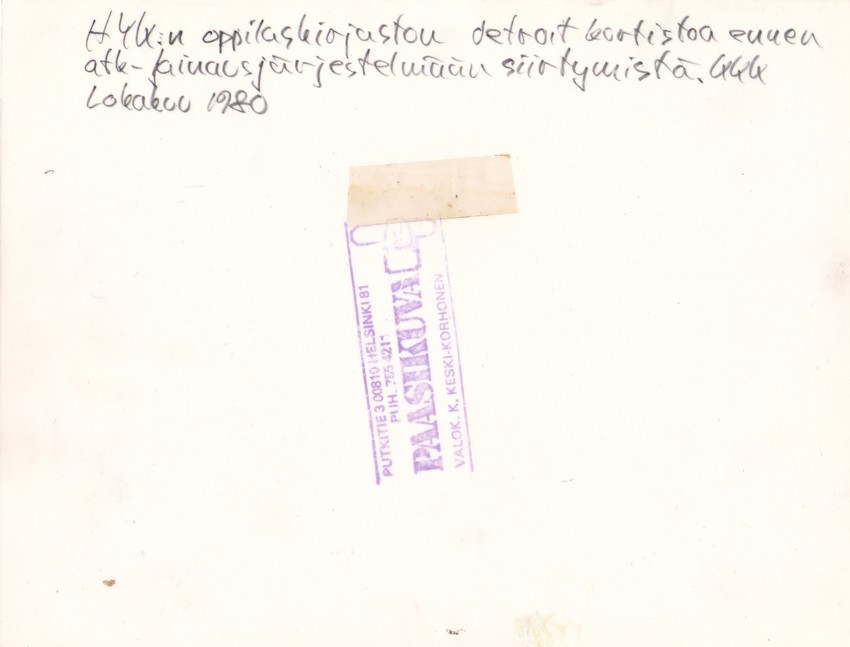 HYK:n oppilaskirjaston detroit kortistoa ennen
atk-lainausjärjestelmään siirtymistä. KKK
Lokakuu 1980
PUTKITIE 3 00810 HELSINKI 81
PUH. 755 4211
PAASIKUVA
VALOK. K. KESKI-KORHONEN